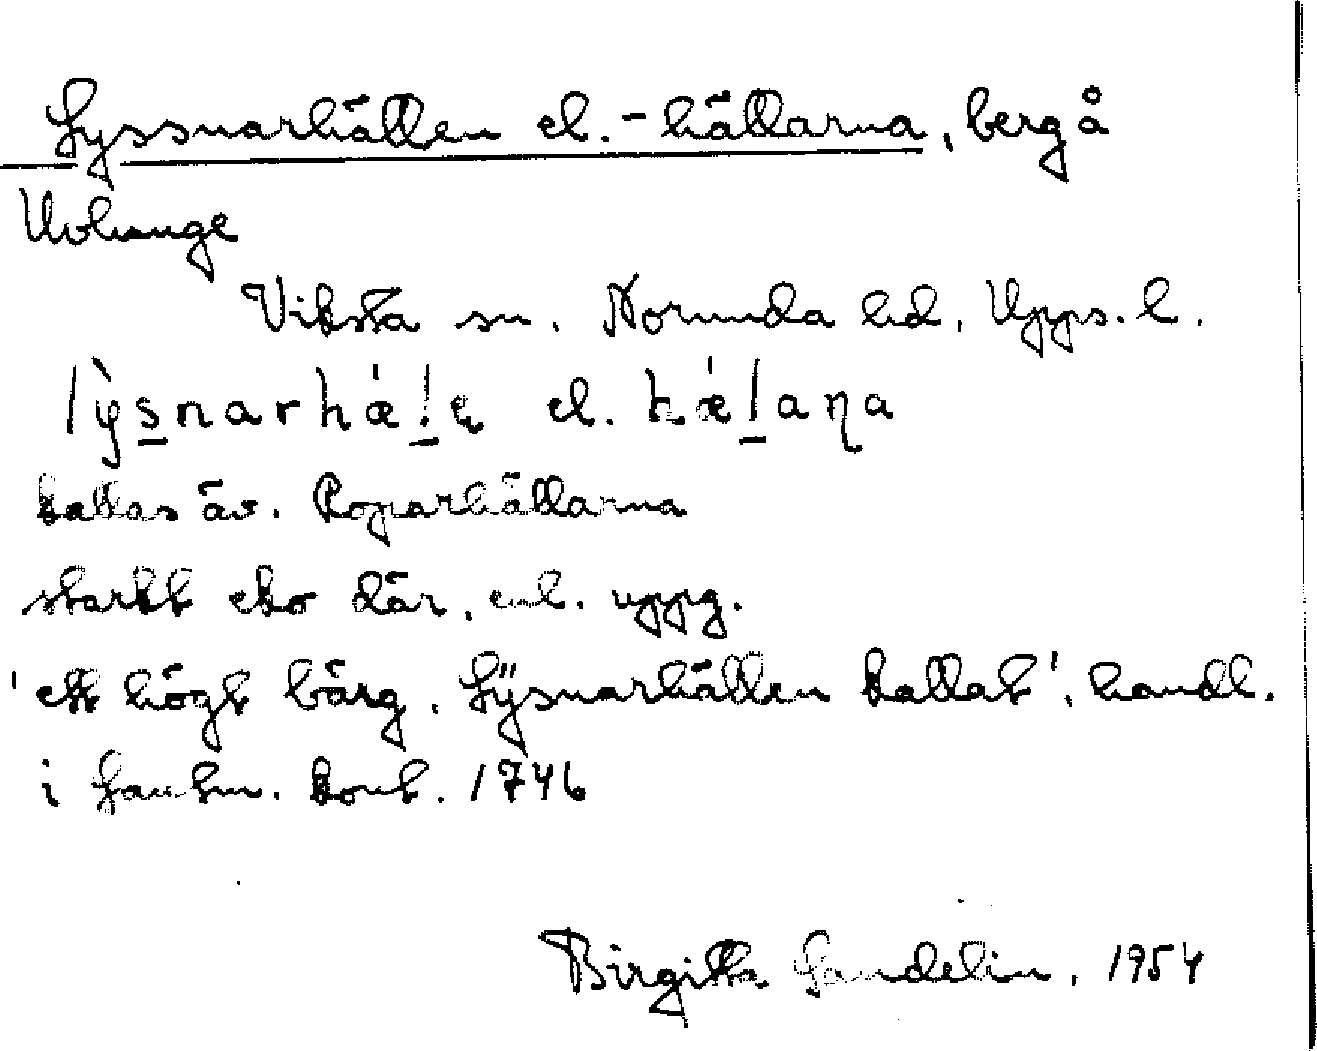 Lyssnarhällen el. -hällarna, berg å
Uvhunge
Viksta sn. Norunda hd. Upps. l.
lỳsnarhǽḷe̥ el. hǽḷaꞃa
kallas äv. Roparhällarna
starkt eko där, enl. uppg.
'ett högt bärg, Lÿsnarhällen kallat', handl.
i Lantm. kont. 1746
Birgitta Sandelin, 1954